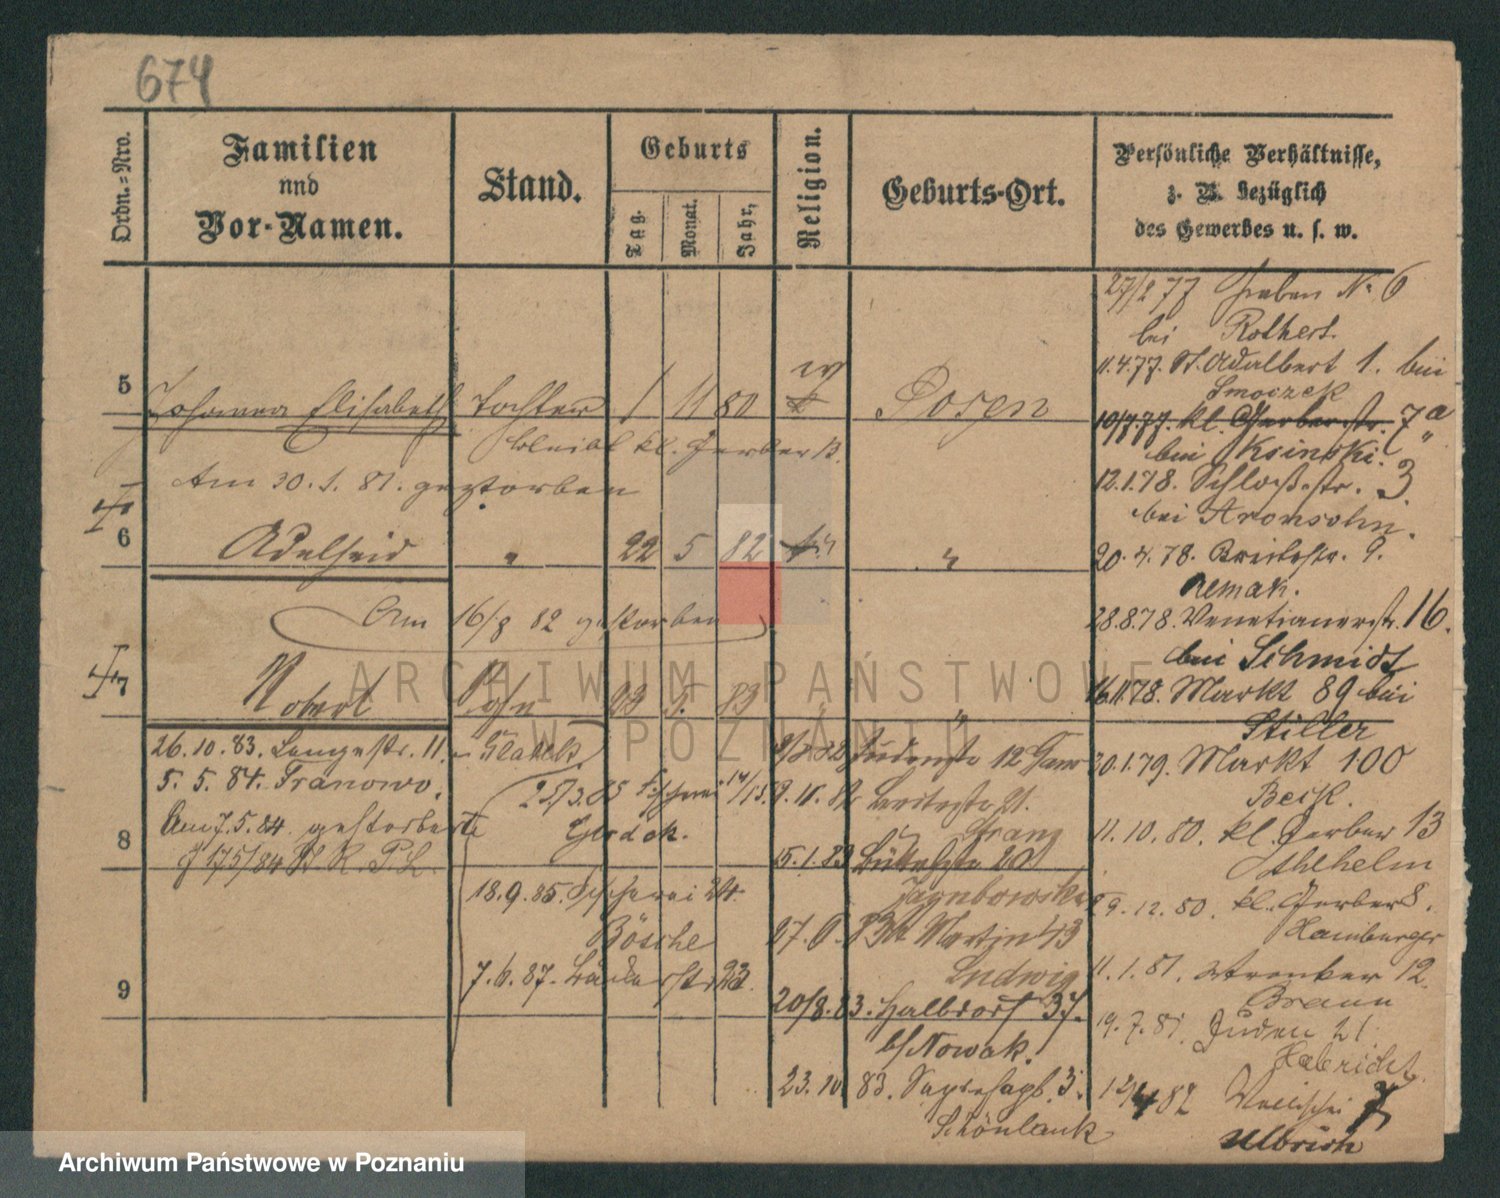 674
Ordn.=Nro.
Familien
und
Vor-Namen.
Stand.
Geburts
Tag.
Monat.
Jahr,
Religion.
Geburts-Ort.
Persönliche Verhältnisse,
z. B. bezüglich
des Gewerbes u. s. w.
5
Johanna Elisabeth Tochter 1 11 80 Posen
bleibt kl. Gerber 13.
Am 30. 1. 81. gestorben
6
Adelheid " 22 5 82 "
Am 16/8 82 gestorben
7
Robert Sohn 03 9. 83 "
26.10.83. Langestr. 11. Glabelt
5. 5. 84. Franowo.
Am 7.5.84 gestorben
25/3.85 Fischerei 14/15.
Glodek.
8
18.9.85. Fischerei 24.
Bösche
7.6.87. Bäckerstr 23.
9
12
9.11.82
Franz
15.1.83 Büttelstr 20
Jagnbowski
27.6.83 St Martin 43
Ludwig
20/8.83. Halbdorf 37.
b/Nowak.
23.10.83. 3.
Schönlank
27/2 77 Graben No 6
bei Rothert.
11.4.77. St. Adalbert 1. bei
Smoczek
10/7.77. kl. Gerberstr. 7a
bei Ksinski.
12.1.78. Schloßstr. 3.
bei Aronsohn.
20.4.78. Breitestr. 9.
Remak.
28.8.78. Venetianerstr. 16.
bei Schmidt
16.11.78. Markt 89 bei
Stiller
30.1.79. Markt 100
Beik.
11.10.80. kl. Gerber 13
Athhelm
29.12.80. kl. Gerber 8.
Hamburger
11.1.81. Wronker 12.
Braun
19.7.81. Juden 21
Habricht.
12/4 82 7
Ulbrich
ARCHIWUM PAŃSTWOWE
W POZNANIU
Archiwum Państwowe w Poznaniu